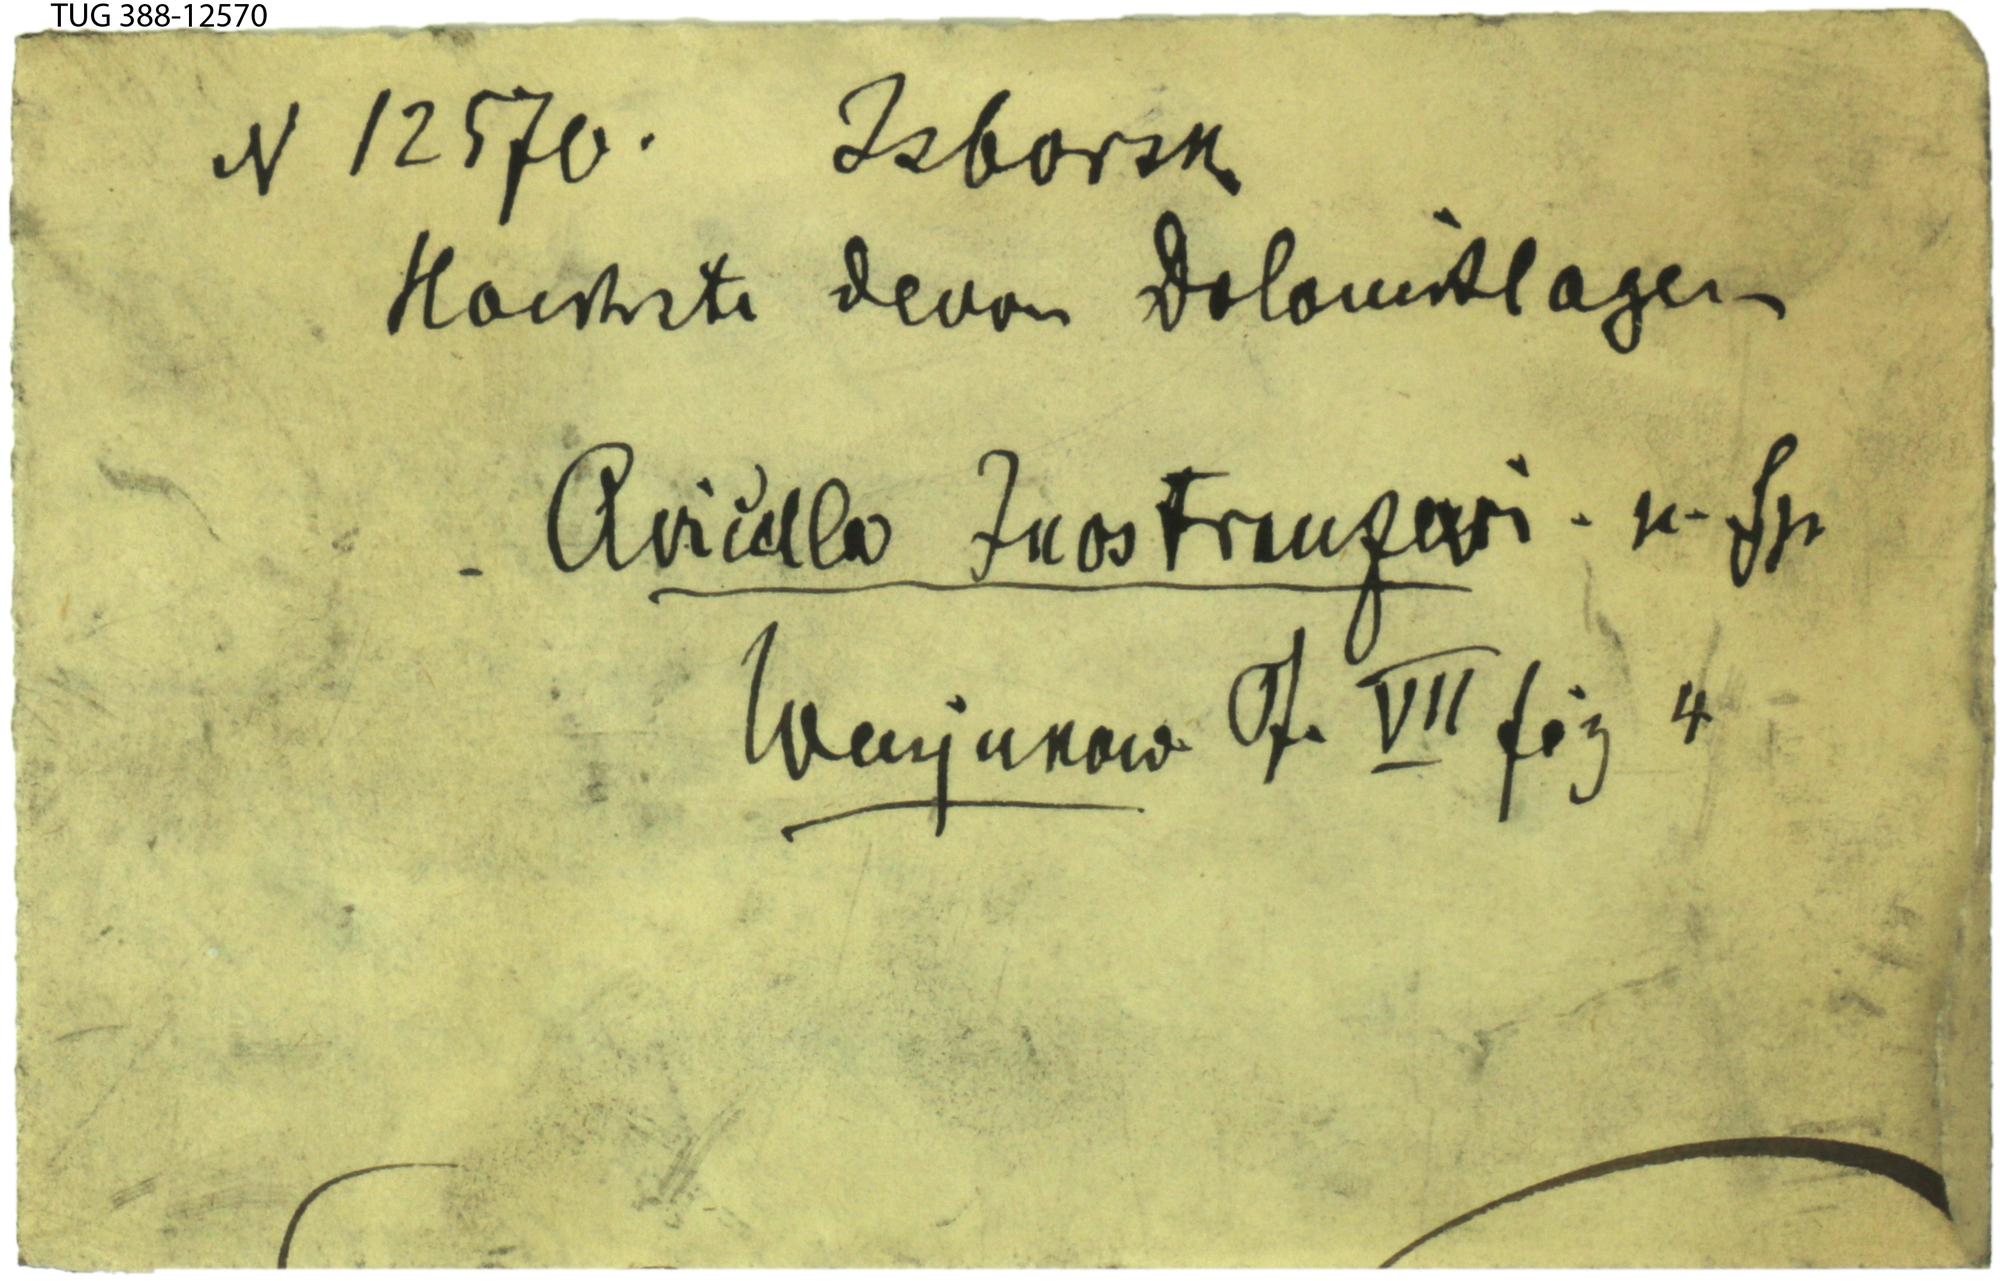 TUG 388-12570
N 12570. Isborsk
Hoechste devon Dolomitlagen
Avicula Inostranzewi. n. Sp
Wenjukow Tf. VII fig 4